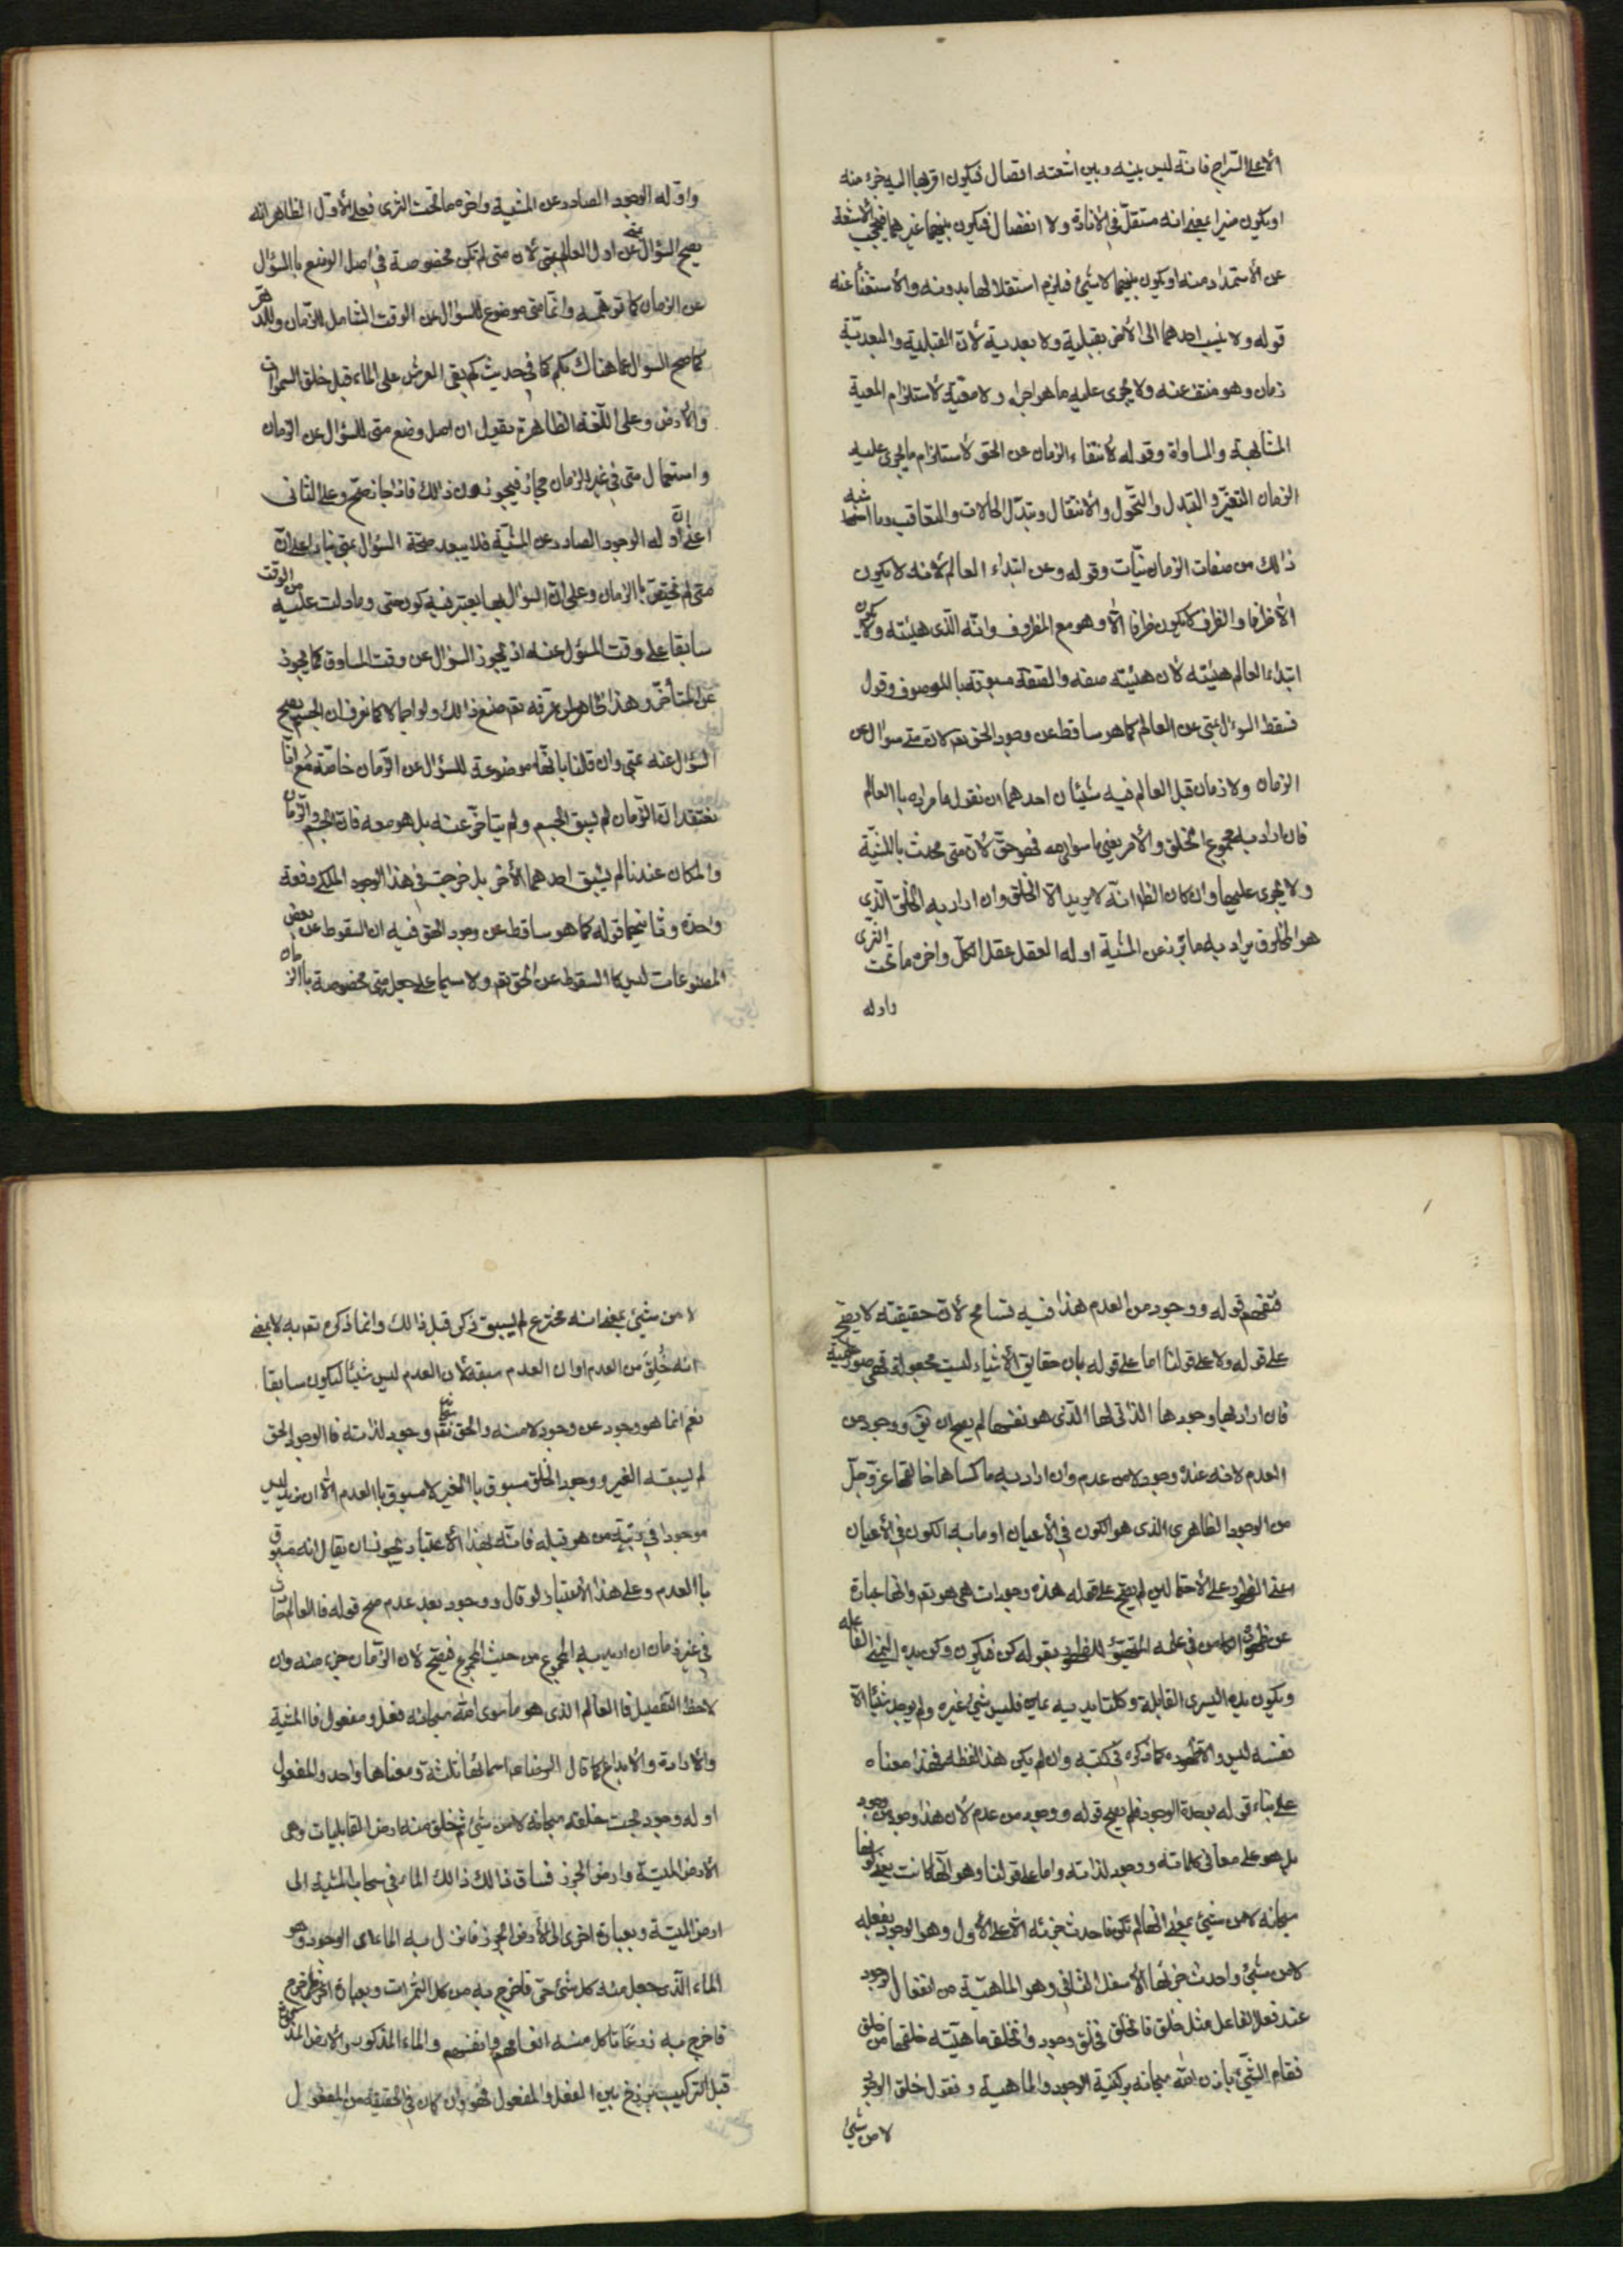 الا على السراج فانه ليس بينه وبين اشعته اتصال فيكون اقربها اليه جزء منه
او يكون منيرا بمعنى انه مستقل في الانارة ولا انفصال فيكون بينهما غيرهما فيحجب الاشعة
عن الاستمداد منه او يكون بينهما لا شيئ فيلزم استقلالها بدونه والاستغناء عنه
قوله ولا ينسب احدهما الى الاخر بقبلية ولا بعدية لأن القبلية والبعدية
زمان وهو منتف عنه ولا يجرى عليه ما هو اجراه ولا معية لاستلزام المعية
المشابهة والمساواة وقوله لانتفاء الزمان عن الحق لاستلزام ما يجرى عليه
الزمان التغير والتبدل والتحول والانتقال وتبدل الحالات والتعاقب وما اشبه
ذالك من صفات الزمانيات وقوله وعن ابتداء العالم لانه لا يكون
الا ظرفا والظرف لا يكون ظرفا الا وهو مع المظروف وانه الذى هيئته ولا يكون
ابتداء العالم هيئته لأن هيئته صفه والصفة مسبوقة باالموصوف وقول
فسقط السوال بمتى عن العالم كما هو ساقط عن وجود الحق تعم لأن متى سوال عن
الزمان ولا زمان قبل العالم فيه شيئان احدهما ان نقول ما مراده باالعالم
فان اراد به مجموع الخلق والأمر يعنى ما سوى الله فهو حق لأن متى محدث باالمشية
ولا يجرى عليها وان كان الظ انه لا يريد الا الخلق وان اراد به الخلق الذى
هو المخلوق يراد به ما برز عن المشية اوله العقل عقل الكل واخره ما تحت الثرى
واوله
واوله الوجود الصادر عن المشية واخره ما تحت الثرى فعلى الأول الظاهر انه
يصح السؤال عن اول العالم بمتى لأن متى لم تكن مخصوصة في اصل الوضع باالسؤال
عن الزمان كما توهمه وانما متى موضوع للسؤال عن الوقت الشامل للزمان والدهر
كما صح السوال عما هناك بكم كما في حديث كم بقى العرش على الماء قبل خلق السموات
والأرض وعلى اللغة الظاهرة نقول ان اصل وضع متى للسؤال عن الزمان
واستعمال متى في غير الزمان مجاز فيجوز ذالك فاذا جاز صح وعلى الثانى
اعنى ان اوله الوجود الصادر عن المشية فلا يبعد صحة السؤال بمتى بناء على ان
متى لم تختص باالزمان وعلى ان السؤال بها يعتبر فيه كون متى وما دلت عليه من الوقت
سابقا على وقت المسؤل عنه اذ يجوز السؤال عن وقت المساوق كما يجوز
عن المتأخر وهذا ظاهر لمن عرفه نعم منع ذالك ولو اجمالا كما نعرف ان الجسم يصح
السؤال عنه بمتى وان قلنا بانها موضوعة للسؤال عن الزمان خاصة مع انا
نعتقد ان الزمان لم يسبق الجسم ولم يتأخر عنه بل هو معه فان الجسم والزمان
والمكان عندنا لم يسبق احدهما الأخر بل خرجت في هذا الوجود الملكى دفعة
واحدة وثانيهما قوله كما هو ساقط عن وجود الحق فيه ان السقوط عن بعض
المصنوعات ليس كا السقوط عن الحق تعم ولا سيما على جعل متى مخصوصة باالزمان
فتفهم قوله ووجود من العدم هذا فيه تسامح لأن حقيقته لا يصح
على قوله ولا على قولنا اما على قوله بان حقايق الأشياء ليست مجعولة فهى صور علمية
فان اراد بها وجودها الذاتى لها الذى هو نفسها لم يصح ان يق ووجود من
العدم لانه عنده وجود لا من عدم وان اراد به ما كساها خالقها عز وجل
من الوجود الظاهرى الذى هو الكون في الأعيان او ما به الكون في الأعيان
اعنى الظهور على الاحتمالين لم يصح على قوله هذه وجودات هى هو تعم وانها عبارة
عن ظهور الكامن في علمه المتهيئ للظهور بقوله كن فيكون وكن يده اليمنى الفاعله
ويكون يده اليسرى القابلة وكلتا يديه يمين فليس شيئ غيره ولم يوجد شيئا الا
نفسه ليس الا ظهوره كما ذكره في كتبه وان لم يكن هذا لفظه فهذا معناه
على بناء قوله بوحدة الوجود فلم يصح قوله ووجود من عدم لأن هذا وجود من وجود
بل هو على معانى كلماته ووجود لذاته واما على قولنا وهو انها كانت بعد كونها
سبحانه لا من شيئ بمعنى انها لم تكن فاحدث جزئه الأعلى الأول وهو الوجود بفعله
لا من شيئ واحدث جزئها الأسفل الثانى وهو الماهية من انفعال الوجود
عند فعل الفاعل مثل خلق فانخلق فخلق وجود وانخلق ماهيته خلقها من خلق
فقام الشيئ باذن الله سبحانه بركنيه الوجود والماهية ونقول خلق الوجود
لا من شيئ
لا من شيئ بمعنى انه مخترع لم يسبق ذكر قبل ذالك وانما ذكره تعم به لا بمعنى
انه خُلِقَ من العدم او ان العدم سبقه لأن العدم ليس شيئا ليكون سابقا
نعم انما هو وجود عن وجود لا منه والحق تعم وجود لذاته فا الوجود الحق
لم يسبقه الغير ووجود الخلق مسبوق باالغير لا مسبوق باالعدم الا ان نريد ليس
موجودا في رتبة من هو قبله فانه بهذا الاعتبار يجوز ان يقال انه مسبوق
باالعدم وعلى هذا الاعتبار لو قال ووجود بعد عدم صح قوله فا العالم
في غير زمان ان اريد به المجموع من حيث المجموع فصحيح لأن الزمان جزء منه وان
لاحظ التفصيل فا العالم الذى هو ما سوى الله سبحانه فعل ومفعول فا المشية
والارادة والابداع كما قال الرضا ع اسمائها ثلثة ومعناها واحد والمفعول
اوله وجود بحت خلقه سبحانه لا من شيئ ثم خلق منه ارض القابليات وهى
الأرض الميتة وارض الجرز فساق ذالك الماء في سحاب المشية الى
ارض الميتة وبعبارة اخرى الى الأرض الجرز فانزل به الماء اى الوجود وهو
الماء الذى جعل منه كل شئ حى فاخرج به من كل الثمرات وبعبارة اخرى
فاخرج به زرعًا تاكل منه انعامهم وانفسهم والماء المذكور والأرض المذكورة
قبل التركيب برزخ بين الفعل والمفعول فهو وان كان في الحقيقة من المفعول